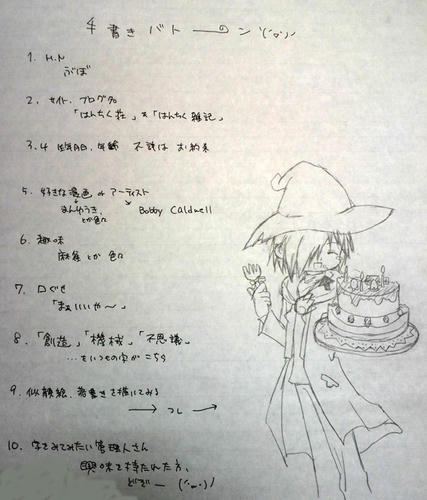 手書きバトーのン ٩('ω')و
1. H.N
ぶぼ
2. サイト、ブログ名
「はんちく荘」&「はんちく雑記」
3.4 生年月日、年齢 不詳は お約束
5. 好きな漫画 or アーティスト
まんゆうき とか色々 Bobby Caldwell
6. 趣味
麻雀とか 色々
7. 口ぐせ
「まぁいいや〜」
8. 「創造」「機械」「不思議」
…をいつもの字がこちら
9. 似顔絵、落書きを描いてみる
→ コレ →
10. 字をみてみたい管理人さん
興味を持たれた方、
どぞー ('ω')ノ